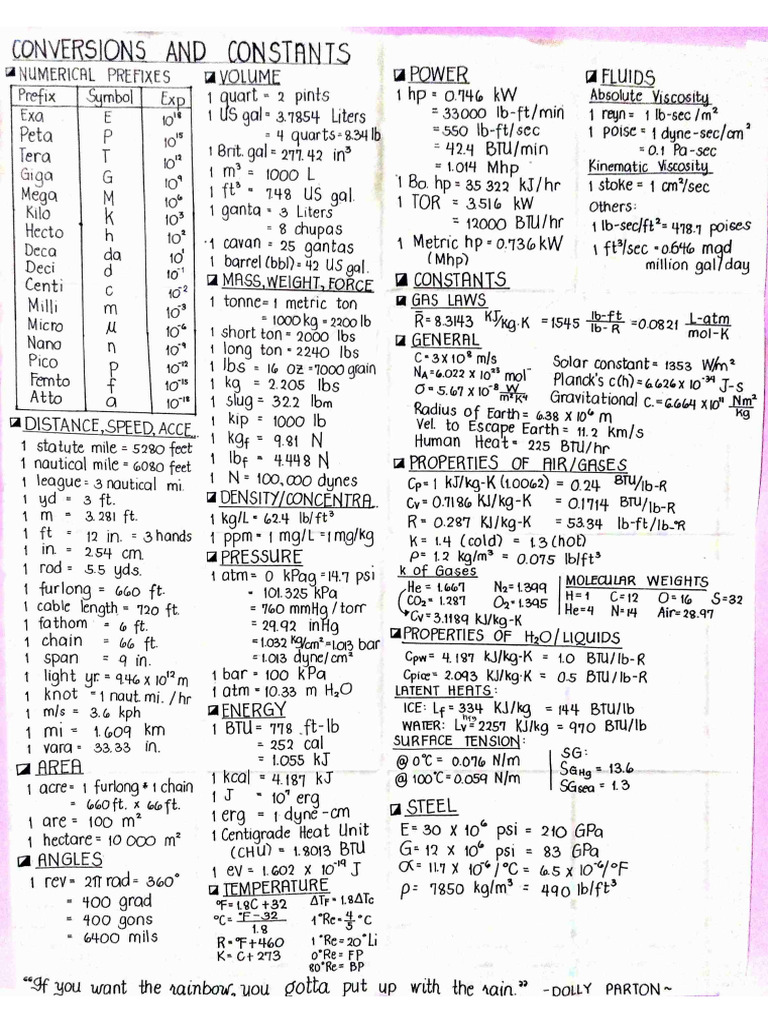 CONVERSIONS AND CONSTANTS
NUMERICAL PREFIXES
Prefix Symbol Exp
Exa E 10^18
Peta P 10^15
Tera T 10^12
Giga G 10^9
Mega M 10^6
Kilo k 10^3
Hecto h 10^2
Deca da 10^1
Deci d 10^-1
Centi c 10^-2
Milli m 10^-3
Micro μ 10^-6
Nano n 10^-9
Pico p 10^-12
Femto f 10^-15
Atto a 10^-18
DISTANCE, SPEED, ACCE..
1 statute mile = 5280 feet
1 nautical mile = 6080 feet
1 league = 3 nautical mi.
1 yd = 3 ft.
1 m = 3.281 ft.
1 ft = 12 in. = 3 hands
1 in. = 2.54 cm.
1 rod = 5.5 yds.
1 furlong = 660 ft.
1 cable length = 720 ft.
1 fathom = 6 ft.
1 chain = 66 ft.
1 span = 9 in.
1 light yr. = 9.46 x 10^12 m
1 knot = 1 naut. mi. /hr
1 m/s = 3.6 kph
1 mi = 1.609 km
1 vara = 33.33 in.
AREA
1 acre = 1 furlong * 1 chain
= 660 ft. x 66 ft.
1 are = 100 m²
1 hectare = 10 000 m²
ANGLES
1 rev = 2π rad = 360°
= 400 grad
= 400 gons
= 6400 mils
VOLUME
1 quart = 2 pints
1 US gal = 3.7854 Liters
= 4 quarts = 8.34 lb
1 Brit. gal = 277.42 in³
1 m³ = 1000 L
1 ft³ = 7.48 US gal.
1 ganta = 3 Liters
= 8 chupas
1 cavan = 25 gantas
1 barrel (bbl) = 42 US gal.
MASS, WEIGHT, FORCE
1 tonne = 1 metric ton
= 1000 kg = 2200 lb
1 short ton = 2000 lbs
1 long ton = 2240 lbs
1 lbs = 16 oz = 7000 grain
1 kg = 2.205 lbs
1 slug = 32.2 lbm
1 kip = 1000 lb
1 kgf = 9.81 N
1 lbf = 4.448 N
1 N = 100,000 dynes
DENSITY/CONCENTRA..
1 kg/L = 62.4 lb/ft³
1 ppm = 1 mg/L = 1 mg/kg
PRESSURE
1 atm = 0 kPag = 14.7 psi
= 101.325 kPa
= 760 mmHg / torr
= 29.92 inHg
= 1.032 kg/cm² = 1.013 bar
= 1.013 dyne/cm²
1 bar = 100 kPa
1 atm = 10.33 m H2O
ENERGY
1 BTU = 778 .ft-lb
= 252 cal
= 1.055 kJ
1 kcal = 4.187 kJ
1 J = 10^7 erg
1 erg = 1 dyne-cm
1 Centigrade Heat Unit
(CHU) = 1.8013 BTU
1 eV = 1.602 x 10^-19 J
TEMPERATURE
°F = 1.8C + 32 ΔTF = 1.8ΔTc
°C = °F-32/1.8 1°Re = 4/5 °C
R = °F + 460 1°Re = 20° Li
K = C + 273 0°Re = FP
80°Re = BP
POWER
1 hp = 0.746 kW
= 33000 lb-ft/min
= 550 lb-ft/sec
= 42.4 BTU/min
= 1.014 Mhp
1 Bo. hp = 35 322 kJ/hr
1 TOR = 3.516 kW
= 12000 BTU/hr
1 Metric hp = 0.736 kW
(Mhp)
FLUIDS
Absolute Viscosity
1 reyn = 1 lb-sec/m²
1 poise = 1 dyne-sec/cm²
= 0.1 Pa-sec
Kinematic Viscosity
1 stoke = 1 cm²/sec
Others:
1 lb-sec/ft² = 478.7 poises
1 ft³/sec = 0.646 mgd
million gal/day
CONSTANTS
GAS LAWS
R̄ = 8.3143 KJ/kg.K = 1545 lb-ft/lb-R = 0.0821 L-atm/mol-K
GENERAL
C = 3 x 10^8 m/s
NA = 6.022 x 10^23 mol⁻
σ = 5.67 x 10^-8 W/m²K⁴
Solar constant = 1353 W/m²
Planck's c(h) = 6.626 x 10^-34 J-s
Gravitational c. = 6.664 x 10^11 Nm²/kg
Radius of Earth = 6.38 x 10^6 m
Vel. to Escape Earth = 11.2 km/s
Human Heat = 225 BTU/hr
PROPERTIES OF AIR/GASES
Cp = 1 kJ/kg-K (1.0062) = 0.24 BTU/lb-R
Cv = 0.7186 KJ/kg-K = 0.1714 BTU/lb-R
R = 0.287 KJ/kg-K = 53.34 lb-ft/lb-R
K = 1.4 (cold) = 1.3 (hot)
ρ = 1.2 kg/m³ = 0.075 lb/ft³
k of Gases
He = 1.667 N2 = 1.399
CO2 = 1.287 O2 = 1.395
Cv = 3.1189 KJ/kg-K
MOLECULAR WEIGHTS
H=1 C=12 O=16 S=32
He=4 N=14 Air=28.97
PROPERTIES OF H2O/LIQUIDS
Cpw = 4.187 KJ/kg-K = 1.0 BTU/lb-R
Cpice = 2.093 KJ/kg-K = 0.5 BTU/lb-R
LATENT HEATS:
ICE: Lf = 334 KJ/kg = 144 BTU/lb
WATER: Lv = 2257 KJ/kg = 970 BTU/lb
SURFACE TENSION:
@ 0°C = 0.076 N/m
@ 100°C = 0.059 N/m
SG:
SGHg = 13.6
SGsea = 1.3
STEEL
E = 30 x 10^6 psi = 210 GPa
G = 12 x 10^6 psi = 83 GPa
α = 11.7 x 10^-6/°C = 6.5 x 10^-6/°F
ρ = 7850 kg/m³ = 490 lb/ft³
"If you want the rainbow, you gotta put up with the rain." -DOLLY PARTON~